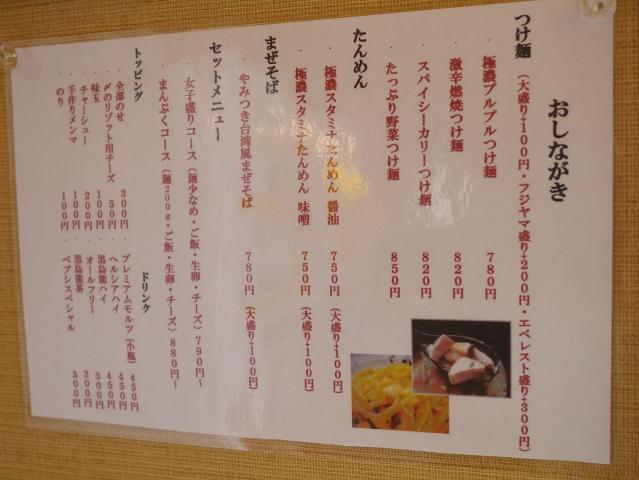 おしながき
つけ麺（大盛り+100円・フジヤマ盛り+200円・エベレスト盛り+300円）
・極濃プルプルつけ麺 780円
・激辛燃焼つけ麺 820円
・スパイシーカリーつけ麺 820円
・たっぷり野菜つけ麺 850円
たんめん
・極濃スタミナたんめん 醤油 750円（大盛り+100円）
・極濃スタミナたんめん 味噌 750円（大盛り+100円）
まぜそば
・やみつき台湾風まぜそば 780円（大盛り+100円）
セットメニュー
・女子盛りコース（麺少なめ・ご飯・生卵・チーズ）790円~
・まんぷくコース（麺200g・ご飯・生卵・チーズ）880円~
トッピング
・全部のせ 300円
・〆のリゾット用チーズ 50円
・味玉 100円
・チャーシュー 200円
・手作りメンマ 100円
・のり 100円
ドリンク
・プレミアムモルツ（小瓶）450円
・ヘルシアハイ 450円
・黒烏龍ハイ 450円
・オールフリー 300円
・黒烏龍茶 300円
・ペプシスペシャル 300円